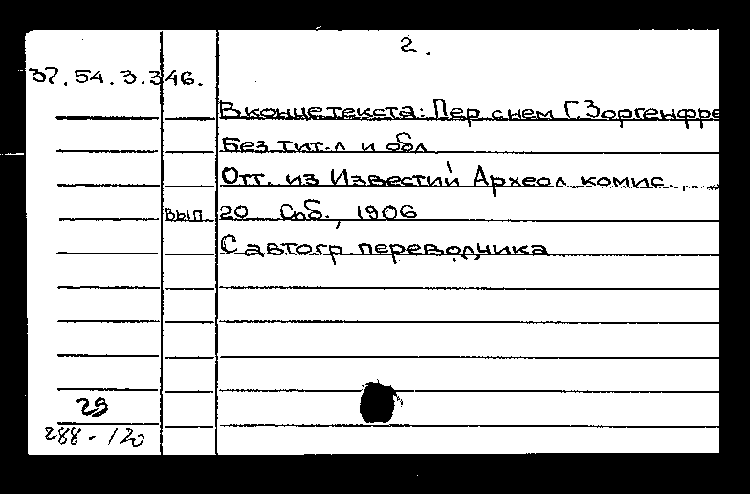 2.
37.54.3.346.
В конце текста: Пер с нем Г. Зоргенфре
Без тит. л и обл
Отт. из Известий Археол комис.,
вып 20 Спб., 1906
С автогр переводчика
29
288-120